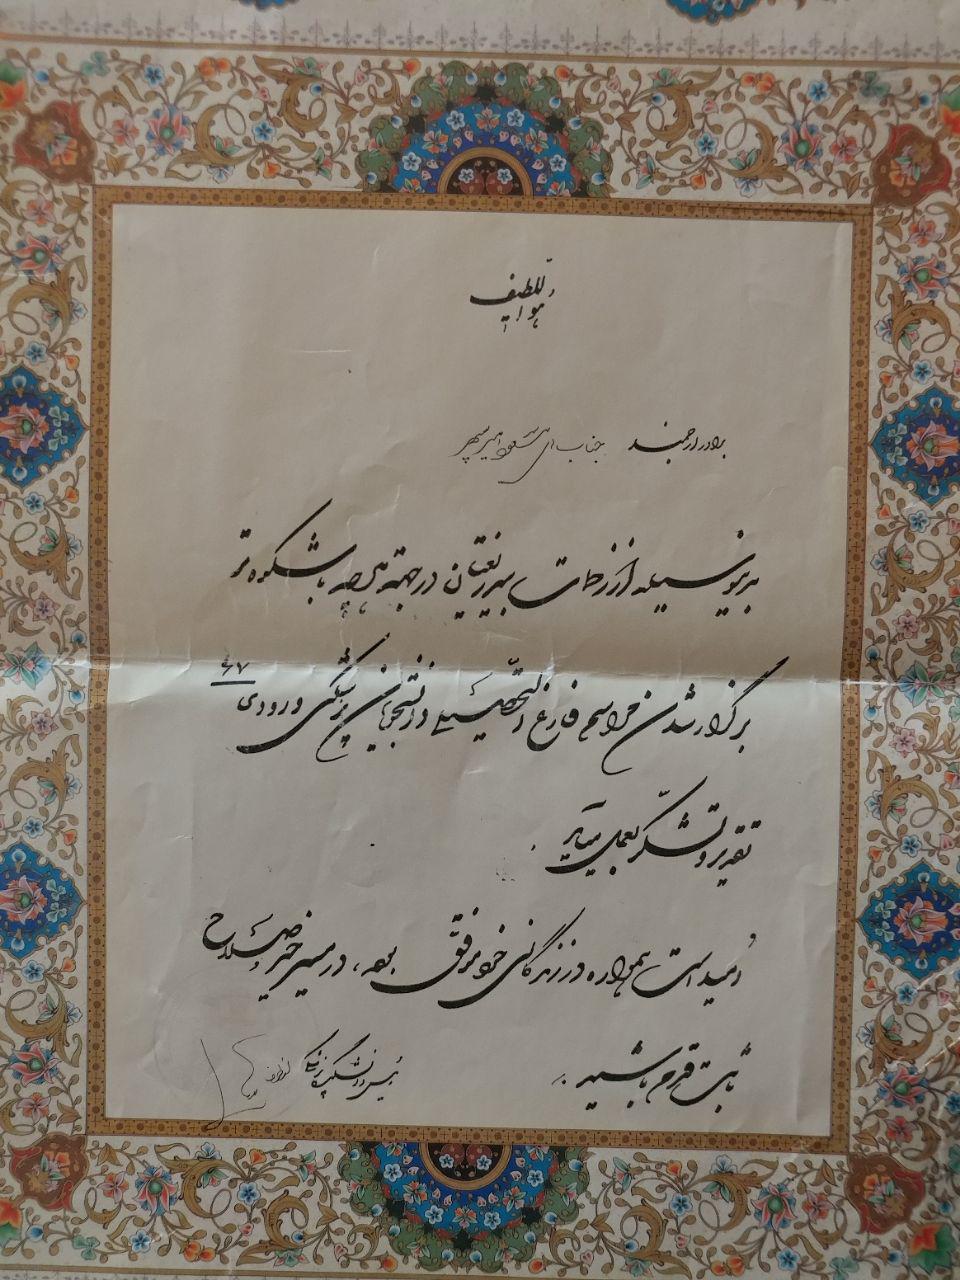 هو اللطیف
برادر ارجمند جناب آقای مسعود امیر سپهر
بدینوسیله از زحمات بیدریغتان در جهت هر چه باشکوه تر
برگزار شدن مراسم فارغ التحصیلی دانشجویان پزشکی ورودی ۶۷
تقدیر و تشکر بعمل میآید.
امید است همواره در زندگانی خود موفق بوده، در مسیر خیر و صلاح
ثابت قدم باشید.
رئیس دانشکده پزشکی